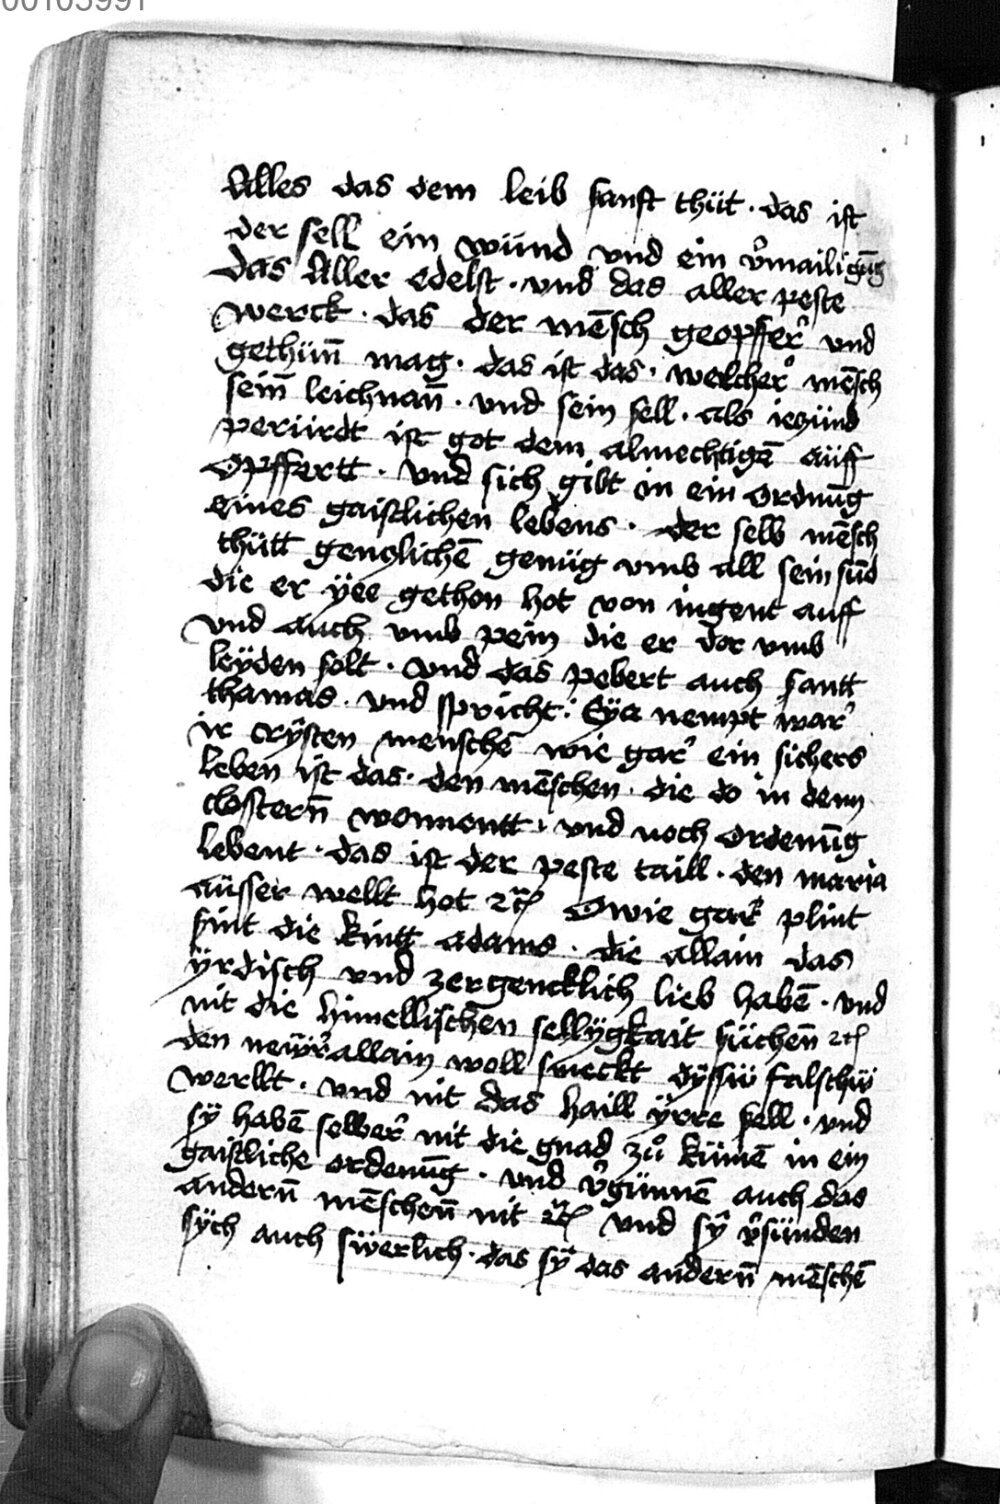 00103991
Alles das dem leib sanft thüt · das ist
der sell ein wünd und ein v̊mailigūg
Das Aller edelst · und das aller peste
werck · das der mēsch geopffer̉ und
gethün̄ mag · das ist das · welcher̉ mēsch
seim̄ leichnan̄ · und sein sell · als iezünd
perürdt ist got dem almechtigē aüff
opffertt · und sich gibt in ein ordnūg
eines gaistlichen lebens · der selb mēsch
thütt genzlichē genüg umb all sein sūd
die er yee gethon hot von iugent auff
und auch umb pein die er dor umb
leyden solt · und das pebert auch santt
thamas · und spricht · Eya nempt war̉
ir crysten menschē wie gar̉ ein sichers
leben ist das · den mēschen · die do in denn
clostern̄ wonnentt · und noch ordenūg
lebent · das ist der peste taill · den maria
aüsser wellt hot ꝛc̄ O wie gar̉ plint
sint die kintt adams · die allain das
yrdisch und zergencklich lieb habē · und
nit die himellischen sellygkait süchen̄ ꝛc̄
den neür̉ allain woll smeckt dyssü falschü
werllt · und nit das haill yrre sell · und
sy habē selber̉ nit die gnad zů kümē in ein
gaistliche ordenūg · und v̉günnē auch das
andern̄ mēschen̄ nit ꝛc̄ und sy v̉sünden
sych auch swerlich · das sy das andern̄ mēschē